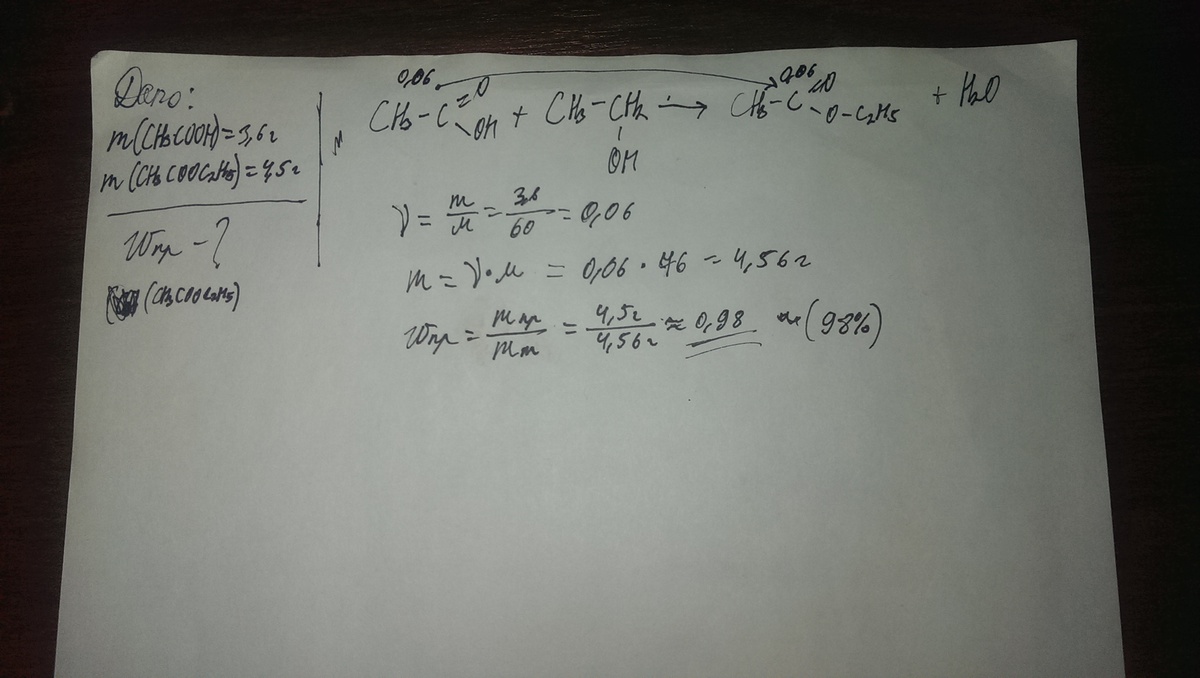 Дано:
m(CH3COOH)=3,6г
m(CH3COOC2H5)=4,5г
Wпр-?
(CH3COOC2H5)
0,06 0,06
CH3-C=O + CH3-CH2 → CH3-C=O + H2O
OH O-C2H5
OH
ν = m/M = 3,6/60 = 0,06
m = ν·M = 0,06·76 = 4,56г
Wпр = mпр/mт = 4,5г/4,56г ≈ 0,98 (98%)